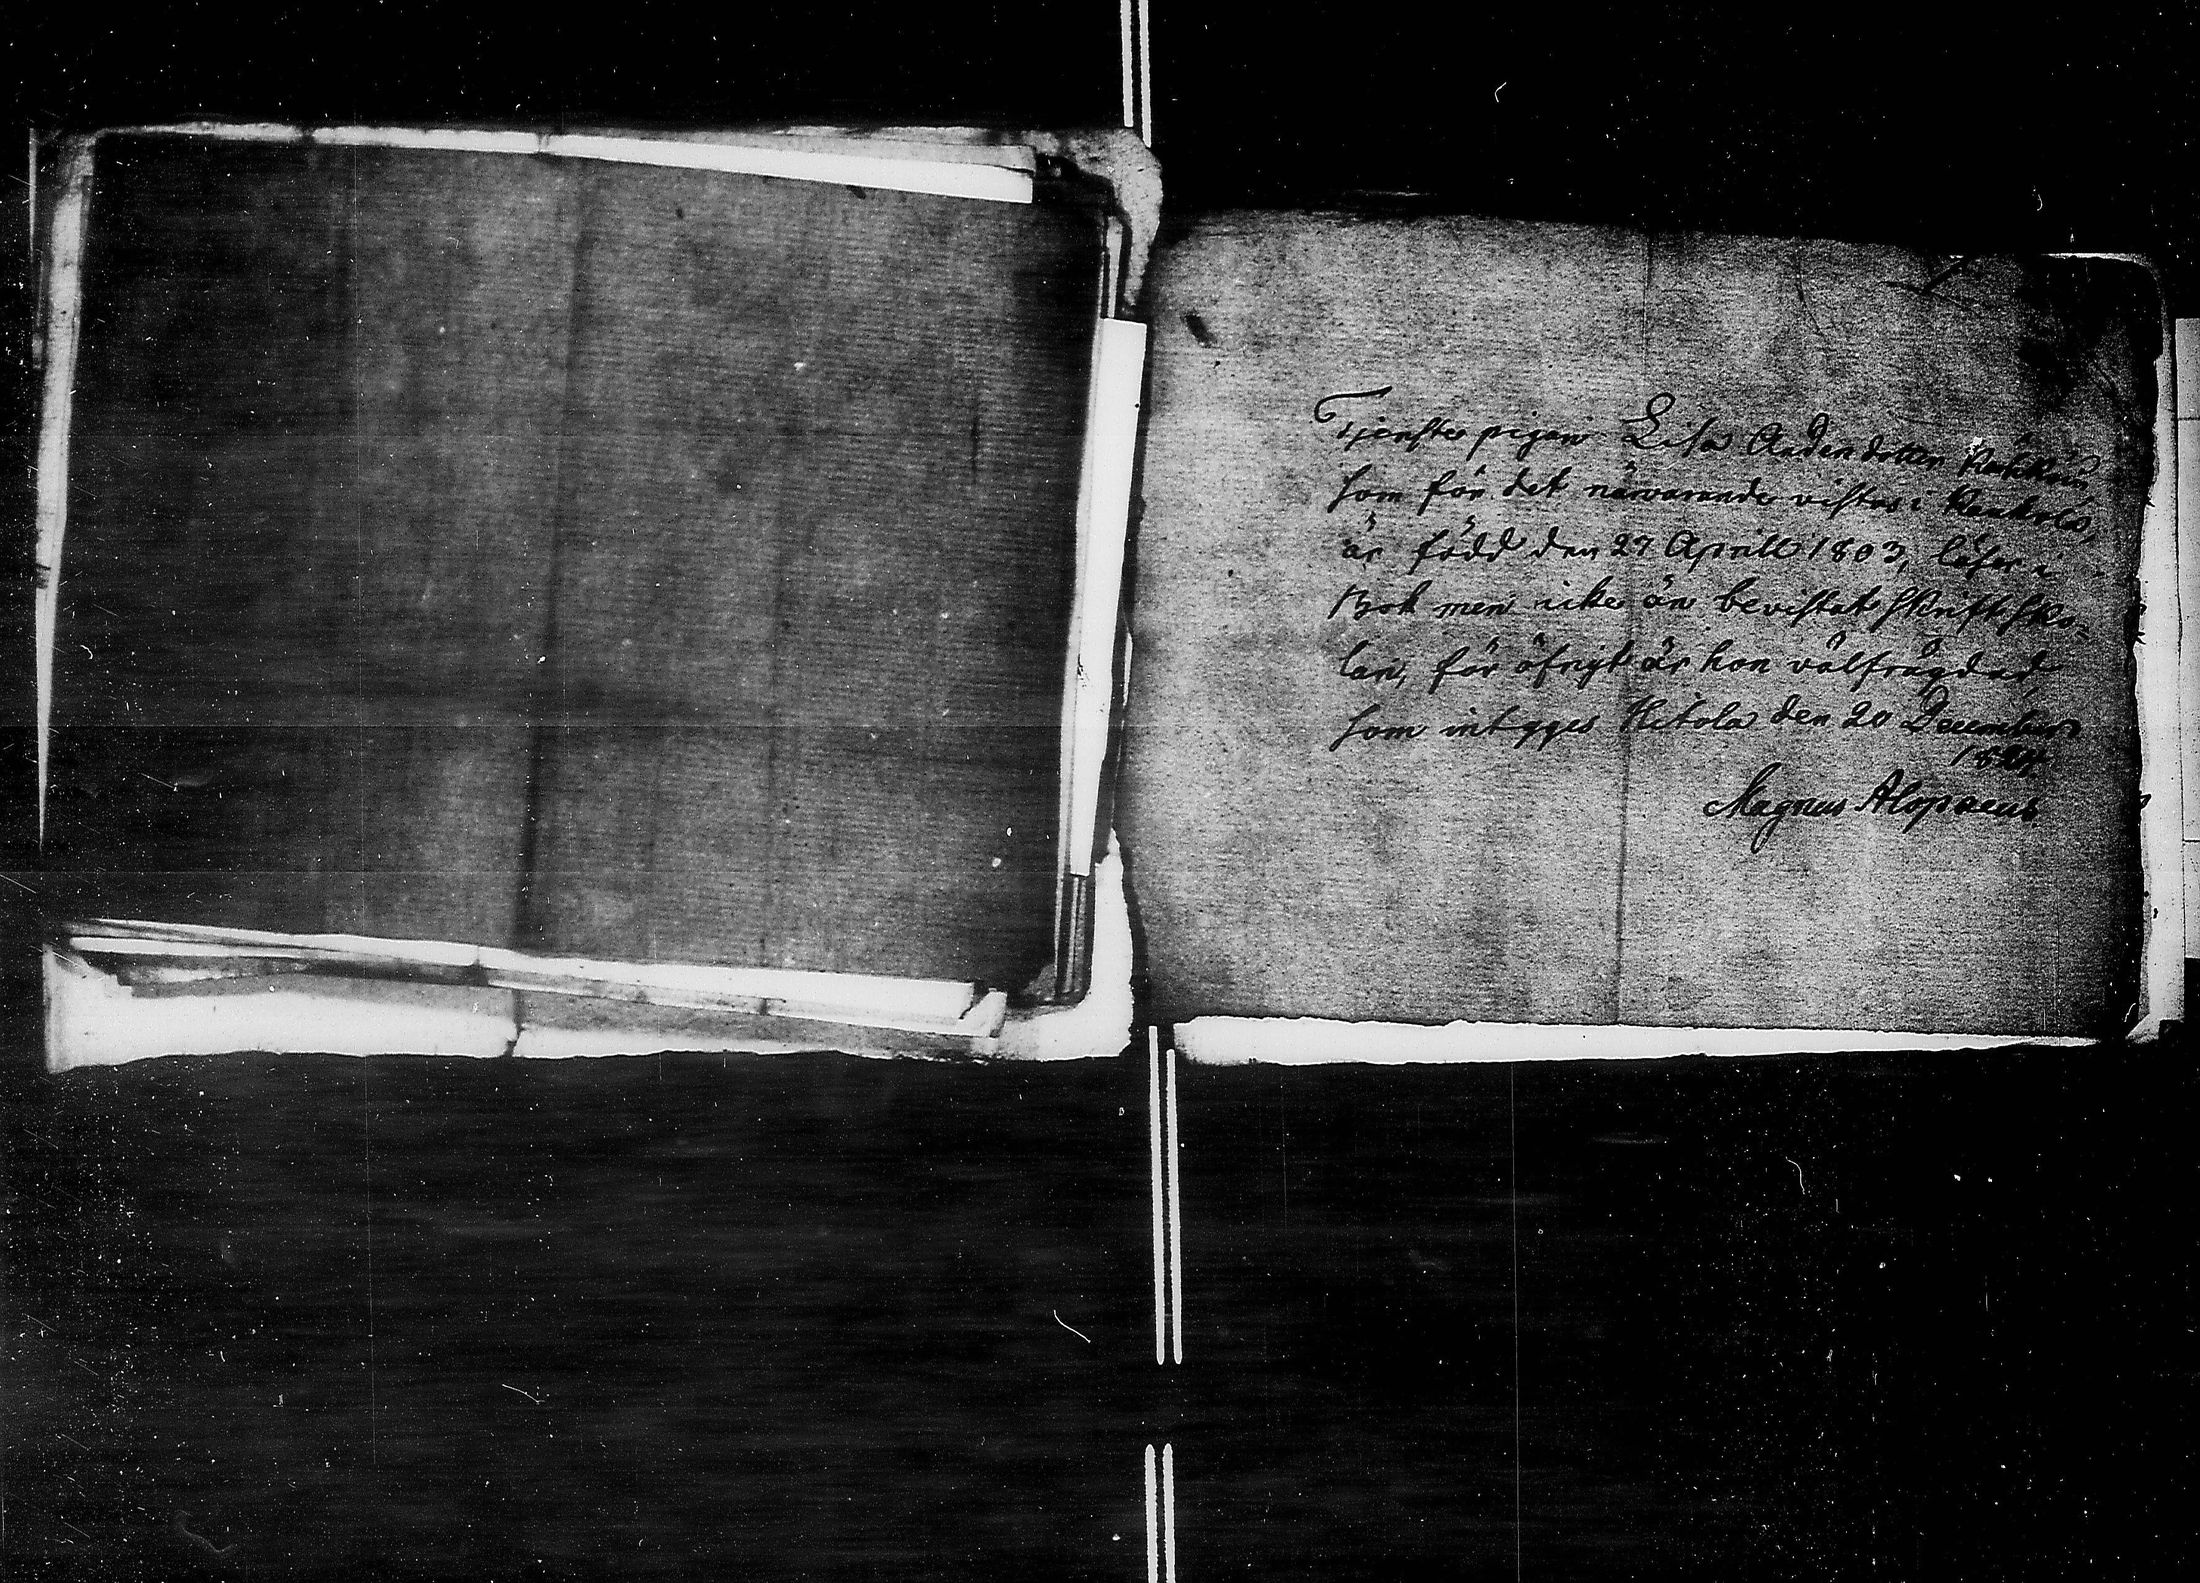 Tjenstepigan Lisa Andersdotter
som för det närvarande vistas i Kaukola,
är född den 27 Aprill 1803, läser i
Bok men icke än bevistat Skriftsko-
lan, för öfrigt är hon välfrägdad,
som intygges Hitola den 20 December
Magnus Alopaeus